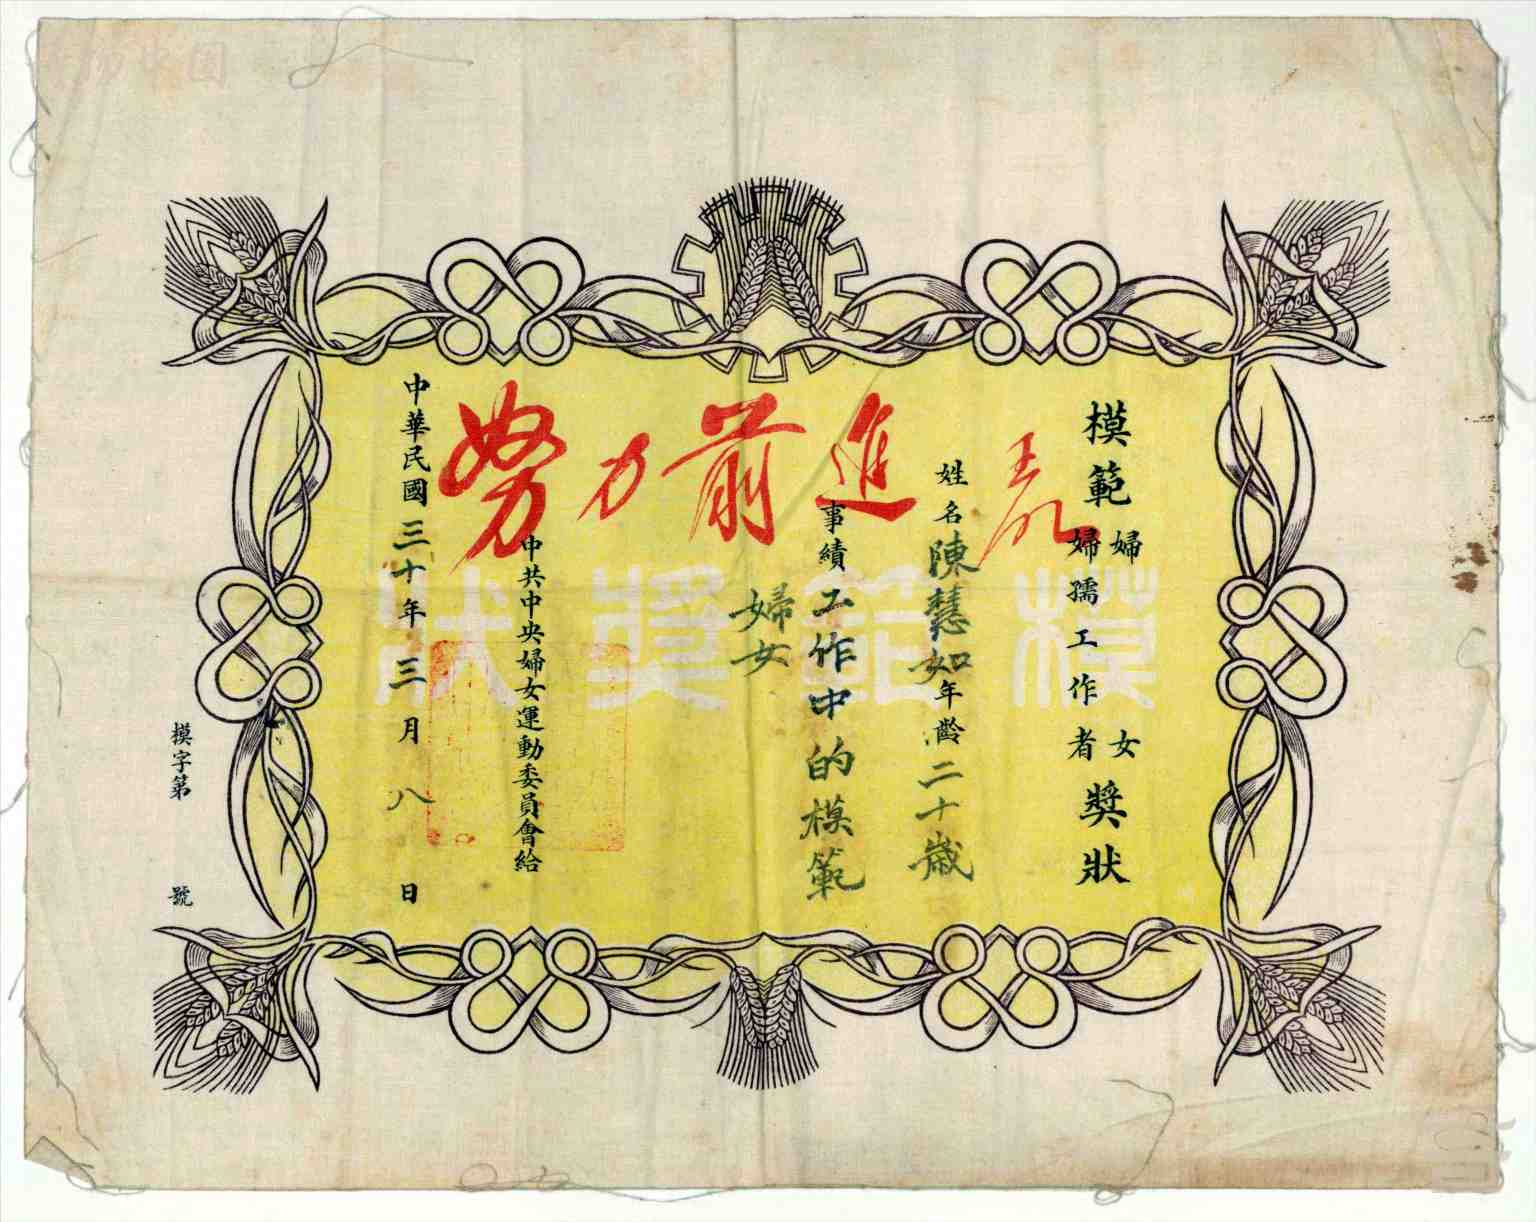 模範婦女獎狀
婦孺工作者
姓名陳慧如年齡二十歲
事績工作中的模範
婦女
努力前進 王明
模範獎狀
中共中央婦女運動委員會給
中華民國三十年三月八日
模字第 號